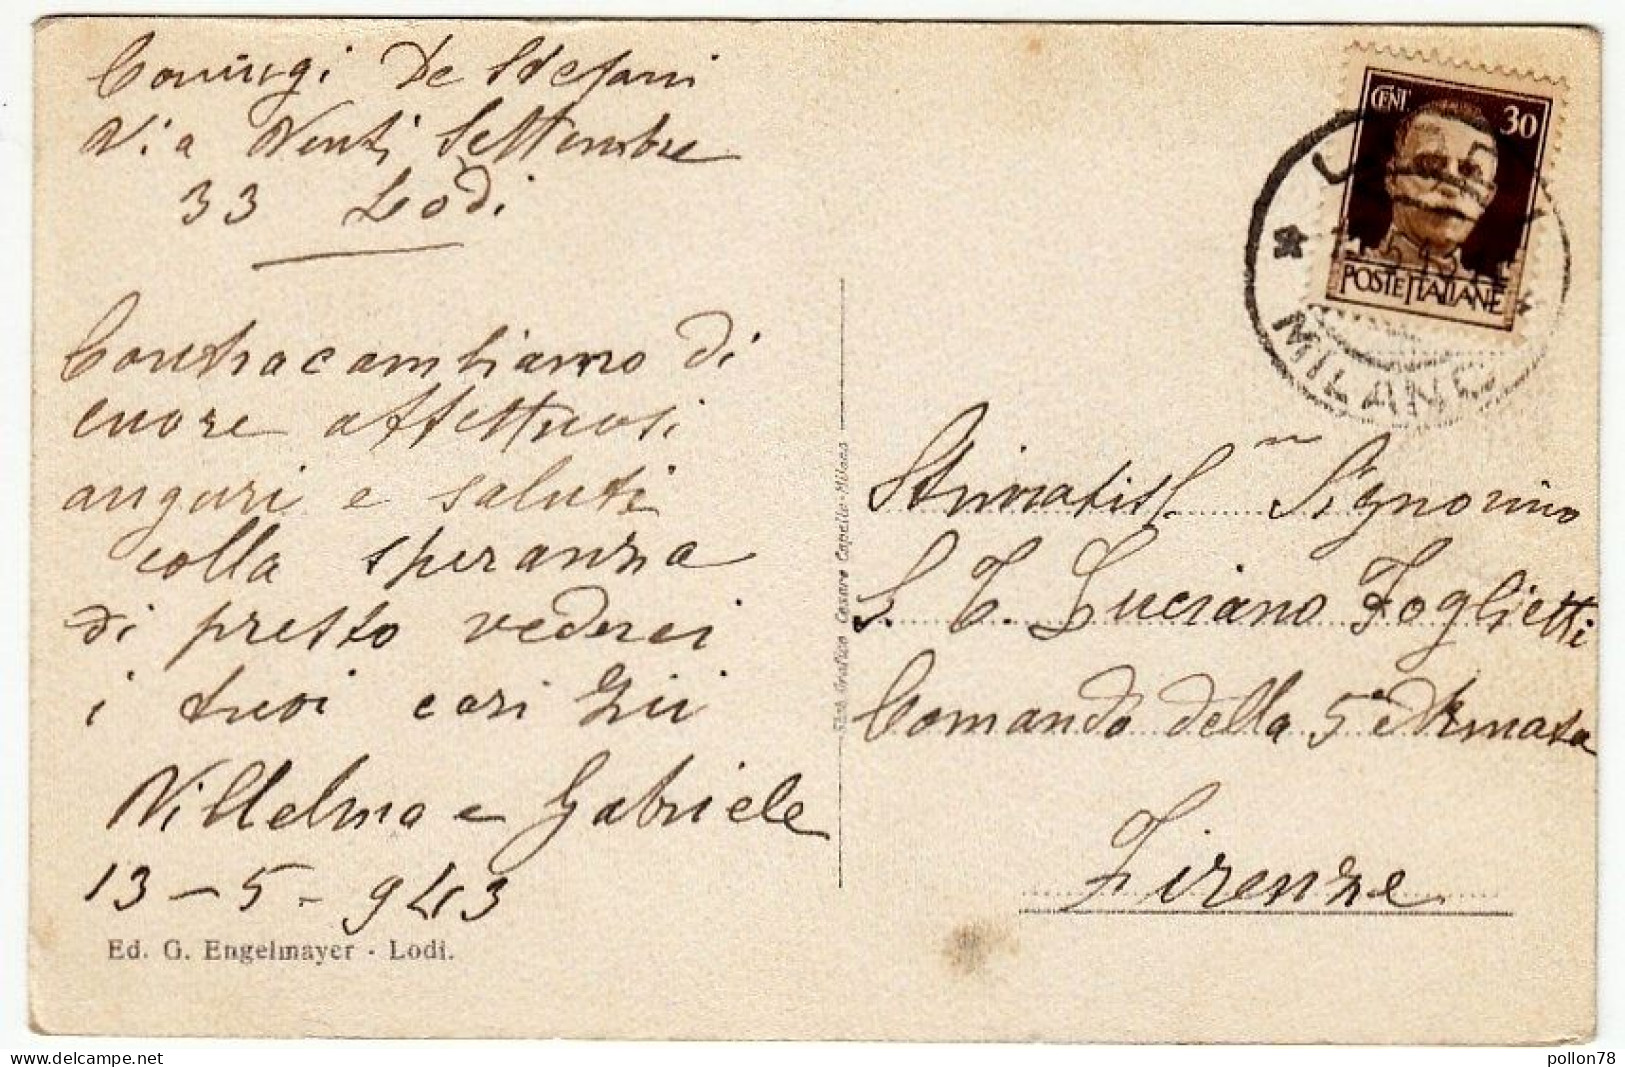 Coniugi De Stefani
Via Venti Settembre
33 Lodi
Contraccambiamo di
cuore affettuosi
auguri e saluti
colla speranza
di presto vederci
i tuoi cari Zii
Villelma e Gabriele
13-5-943
Ed. G. Engelmayer - Lodi.
Stab. Grafico Cesare Capello-Milano
CENT 30
POSTE ITALIANE
MILANO
Stimatiss. mo Signorino
S. T. Luciano Foglietti
Comando della 5ª Armata
Firenze
pollon78